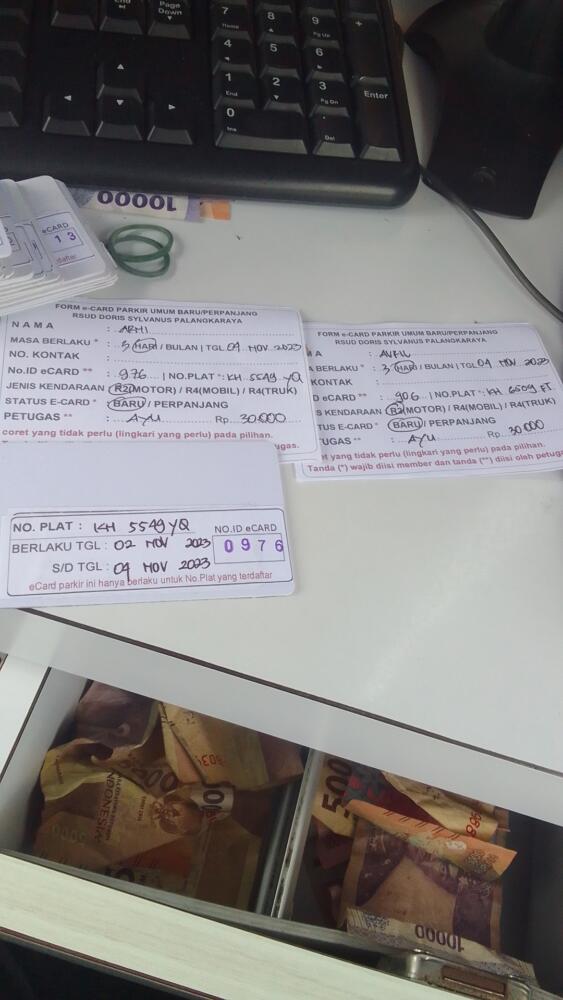 End
Page
Down
7
Home
8
9
Pg Up
+
4
5
6
1
End
2
3
Pg Dn
Enter
0
Ins
.
Del
10000
eCARD
1 3
daftar
FORM e-CARD PARKIR UMUM BARU/PERPANJANG
RSUD DORIS SYLVANUS PALANGKARAYA
NAMA :
MASA BERLAKU * : 3 HARI / BULAN | TGL 04 NOV 2023
NO. KONTAK :
No.ID eCARD ** : 976 | NO.PLAT * : KH 5549 YQ
JENIS KENDARAAN : R2(MOTOR) / R4(MOBIL) / R4(TRUK)
STATUS E-CARD * : BARU / PERPANJANG
PETUGAS ** : AYU Rp 30.000
coret yang tidak perlu (lingkari yang perlu) pada pilihan.
tugas.
FORM e-CARD PARKIR UMUM BARU/PERPANJANG
RSUD DORIS SYLVANUS PALANGKARAYA
MA :
BERLAKU * : 3 HARI / BULAN | TGL 04 NOV 2023
KONTAK :
D eCARD ** : 906 | NO.PLAT * : KH 6509 FT
S KENDARAAN : R2(MOTOR) / R4(MOBIL) / R4(TRUK)
TUS E-CARD * : BARU / PERPANJANG
UGAS ** : AYU Rp 30.000
ret yang tidak perlu (lingkari yang perlu) pada pilihan.
Tanda (*) wajib diisi member dan tanda (**) diisi oleh petuga
NO. PLAT : KH 5549 YQ
NO.ID eCARD
BERLAKU TGL : 02 NOV 2023
0976
S/D TGL : 04 NOV 2023
eCard parkir ini hanya berlaku untuk No.Plat yang terdaftar
INDONESIA
5000
500
10000